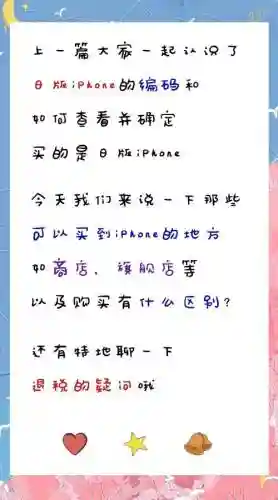 上一篇大家一起认识了
日版iPhone的编码和
如何查看并确定
买的是日版iPhone
今天我们来说一下那些
可以买到iPhone的地方
如商店、旗舰店等
以及购买有什么区别？
还有特地聊一下
退税的疑问哦